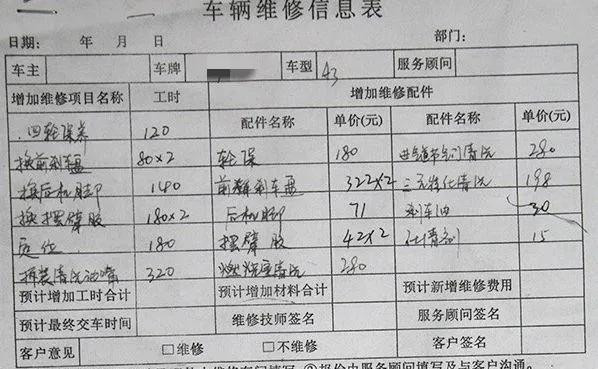 车辆维修信息表
日期: 年 月 日 部门:
车主 车牌 车型 43 服务顾问
增加维修项目名称 工时 增加维修配件
配件名称 单价(元) 配件名称 单价(元)
四轮保养 120 轮保 180 进气节气门清洗 280
换前刹车盘 80×2 前刹车盘 322×2 三元催化清洗 198
换后机脚 140 后机脚 71 刹车油 30
换摆臂胶 180×2 摆臂胶 42×2 15
定位 180 燃烧室清洗 280
拆装清洗油嘴 320
预计增加工时合计 预计增加材料合计 预计新增维修费用
预计最终交车时间 维修技师签名 服务顾问签名
客户意见 □维修 □不维修 客户签名
报价由服务顾问填写及与客户沟通。